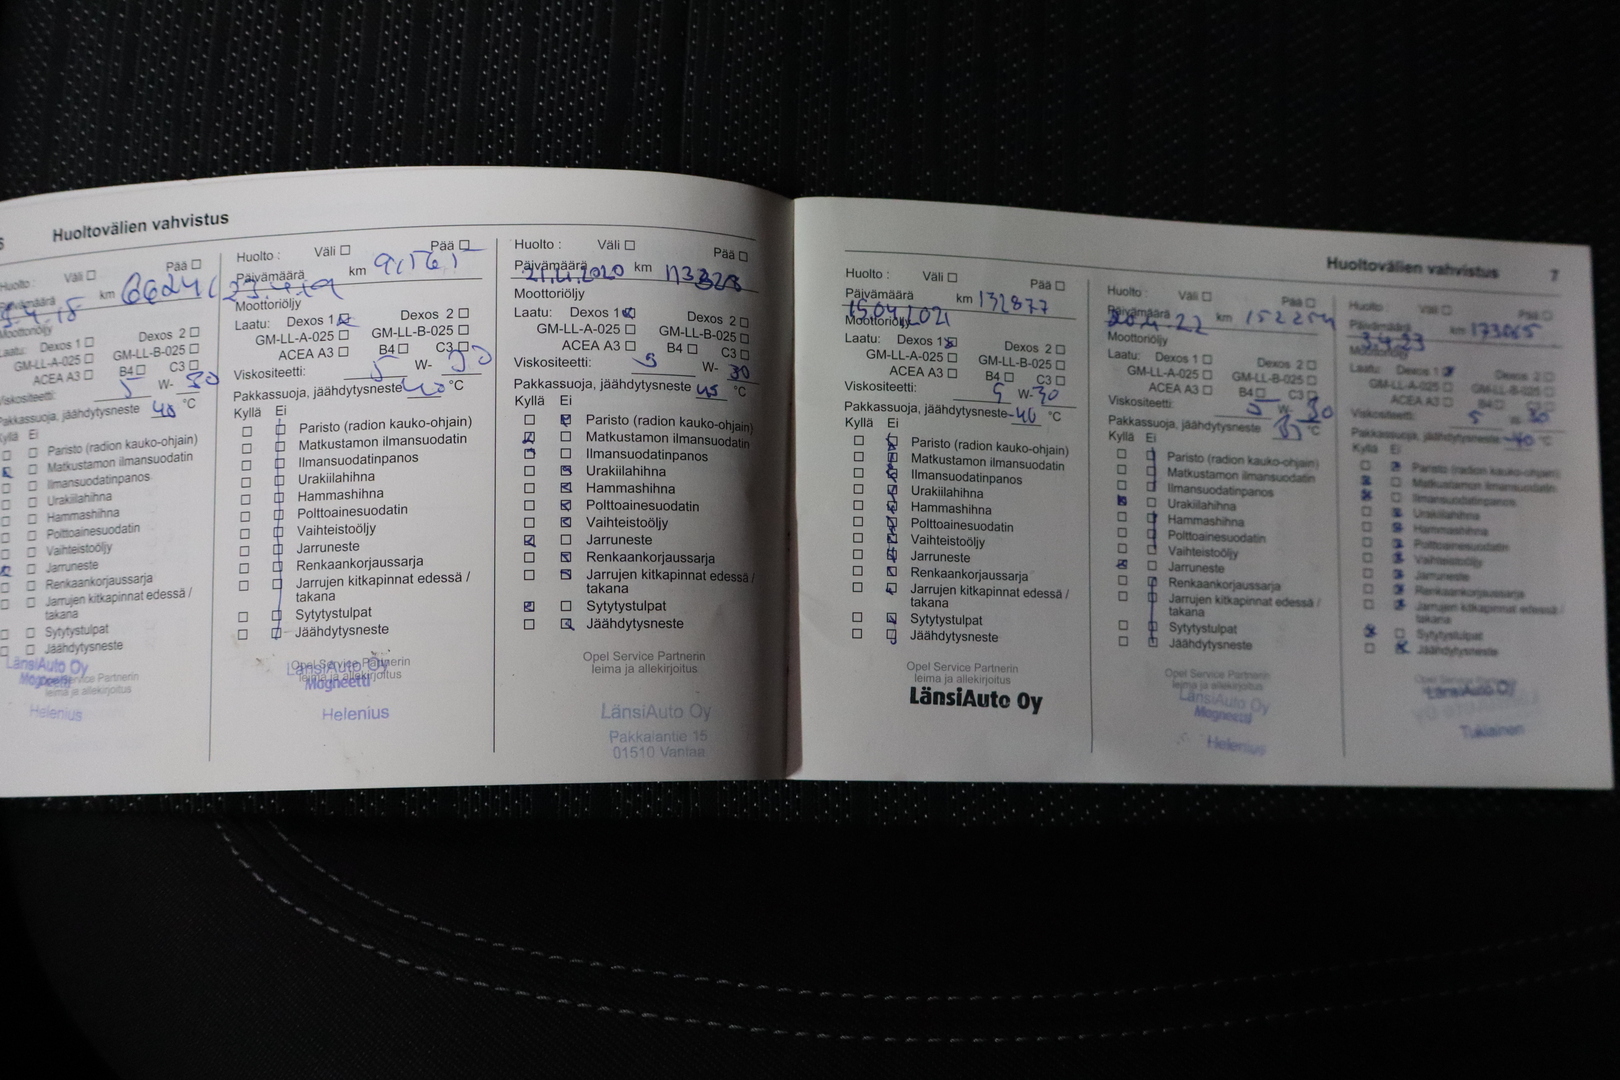 6 Huoltovälien vahvistus
Huolto : Väli Pää
Päivämäärä km
Moottoriöljy
Laatu: Dexos 1 Dexos 2
GM-LL-A-025 GM-LL-B-025
ACEA A3 B4 C3
Viskositeetti: 5 W- 30
Pakkassuoja, jäähdytysneste 40 °C
Kyllä Ei
Paristo (radion kauko-ohjain)
Matkustamon ilmansuodatin
Ilmansuodatinpanos
Urakiilahihna
Hammashihna
Polttoainesuodatin
Vaihteistoöljy
Jarruneste
Renkaankorjaussarja
Jarrujen kitkapinnat edessä /
takana
Sytytystulpat
Jäähdytysneste
Opel Service Partnerin
leima ja allekirjoitus
LänsiAuto Oy
Magneetti
Helenius
Huolto : Väli Pää
Päivämäärä 23.4.19 km
Moottoriöljy
Laatu: Dexos 1 Dexos 2
GM-LL-A-025 GM-LL-B-025
ACEA A3 B4 C3
Viskositeetti: 5 W- 30
Pakkassuoja, jäähdytysneste -40 °C
Kyllä Ei
Paristo (radion kauko-ohjain)
Matkustamon ilmansuodatin
Ilmansuodatinpanos
Urakiilahihna
Hammashihna
Polttoainesuodatin
Vaihteistoöljy
Jarruneste
Renkaankorjaussarja
Jarrujen kitkapinnat edessä /
takana
Sytytystulpat
Jäähdytysneste
Opel Service Partnerin
leima ja allekirjoitus
LänsiAuto Oy
Magneetti
Helenius
Huolto : Väli Pää
Päivämäärä km 113328
Moottoriöljy
Laatu: Dexos 1 Dexos 2
GM-LL-A-025 GM-LL-B-025
ACEA A3 B4 C3
Viskositeetti: 5 W- 30
Pakkassuoja, jäähdytysneste 45 °C
Kyllä Ei
Paristo (radion kauko-ohjain)
Matkustamon ilmansuodatin
Ilmansuodatinpanos
Urakiilahihna
Hammashihna
Polttoainesuodatin
Vaihteistoöljy
Jarruneste
Renkaankorjaussarja
Jarrujen kitkapinnat edessä /
takana
Sytytystulpat
Jäähdytysneste
Opel Service Partnerin
leima ja allekirjoitus
LänsiAuto Oy
Pakkalantie 15
01510 Vantaa
Huoltovälien vahvistus 7
Huolto : Väli Pää
Päivämäärä km 132877
15.04.2021
Moottoriöljy
Laatu: Dexos 1 Dexos 2
GM-LL-A-025 GM-LL-B-025
ACEA A3 B4 C3
Viskositeetti: 5 W-30
Pakkassuoja, jäähdytysneste -40 °C
Kyllä Ei
Paristo (radion kauko-ohjain)
Matkustamon ilmansuodatin
Ilmansuodatinpanos
Urakiilahihna
Hammashihna
Polttoainesuodatin
Vaihteistoöljy
Jarruneste
Renkaankorjaussarja
Jarrujen kitkapinnat edessä /
takana
Sytytystulpat
Jäähdytysneste
Opel Service Partnerin
leima ja allekirjoitus
LänsiAuto Oy
Huolto : Väli Pää
Päivämäärä 20.4.22 km 152254
Moottoriöljy
Laatu: Dexos 1 Dexos 2
GM-LL-A-025 GM-LL-B-025
ACEA A3 B4 C3
Viskositeetti: 5 W- 30
Pakkassuoja, jäähdytysneste °C
Kyllä Ei
Paristo (radion kauko-ohjain)
Matkustamon ilmansuodatin
Ilmansuodatinpanos
Urakiilahihna
Hammashihna
Polttoainesuodatin
Vaihteistoöljy
Jarruneste
Renkaankorjaussarja
Jarrujen kitkapinnat edessä /
takana
Sytytystulpat
Jäähdytysneste
Opel Service Partnerin
leima ja allekirjoitus
LänsiAuto Oy
Magneetti
Helenius
Huolto : Väli Pää
Päivämäärä km 173065
3.4.23
Moottoriöljy
Laatu: Dexos 1 Dexos 2
GM-LL-A-025 GM-LL-B-025
ACEA A3 B4 C3
Viskositeetti: 5 W- 30
Pakkassuoja, jäähdytysneste -40 °C
Kyllä Ei
Paristo (radion kauko-ohjain)
Matkustamon ilmansuodatin
Ilmansuodatinpanos
Urakiilahihna
Hammashihna
Polttoainesuodatin
Vaihteistoöljy
Jarruneste
Renkaankorjaussarja
Jarrujen kitkapinnat edessä /
takana
Sytytystulpat
Jäähdytysneste
Opel Service Partnerin
LänsiAuto Oy
Tukiainen